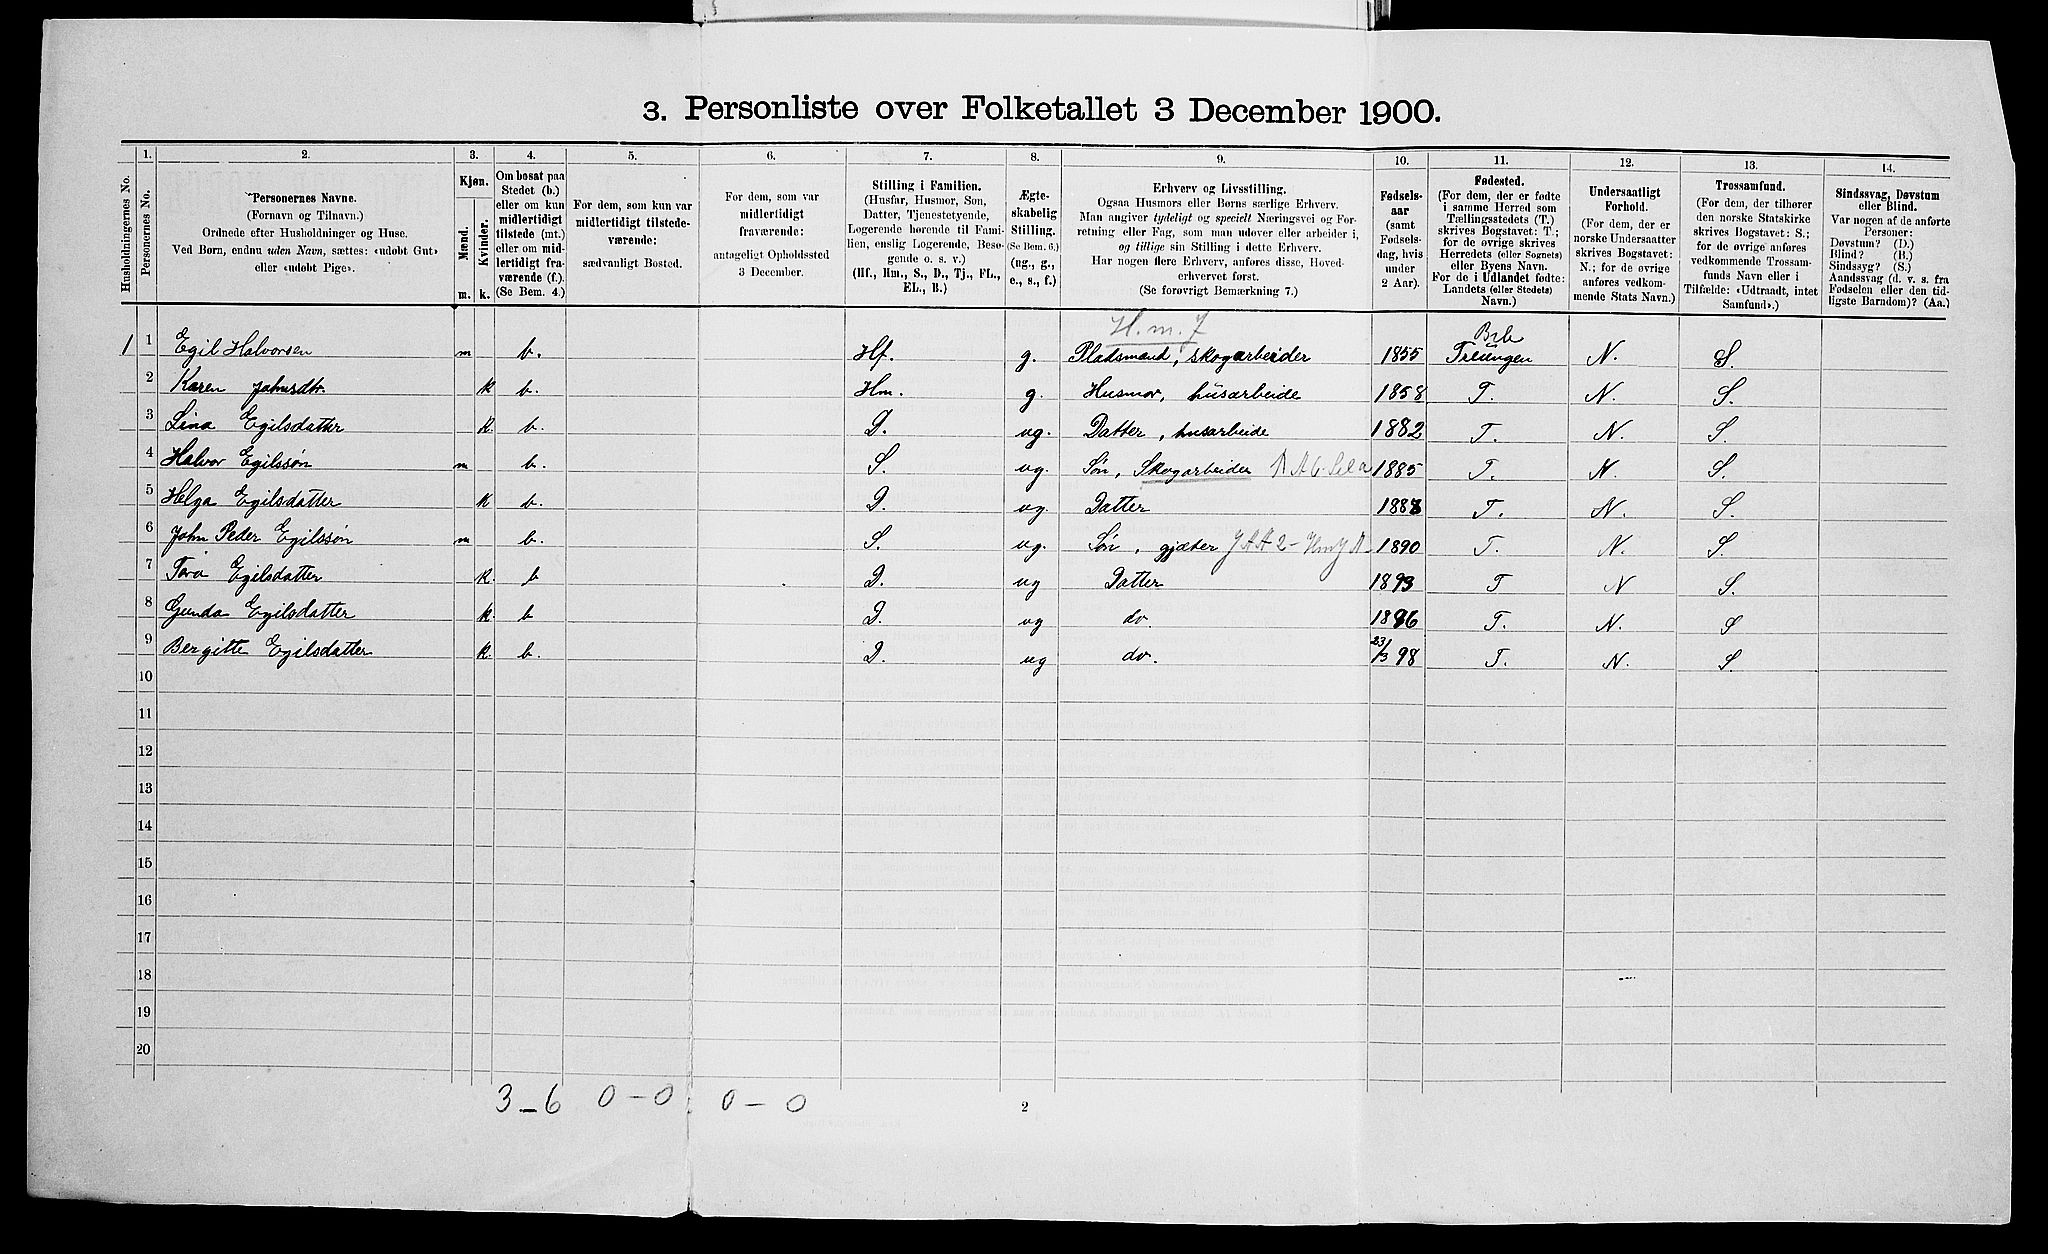 3. Personliste over Folketallet 3 December 1900.
Husholdningernes No.
1.
Personernes No.
2.
Personernes Navne.
(Fornavn og Tilnavn.)
Ordnede efter Husholdninger og Huse.
Ved Børn, endnu uden Navn, sættes: «udøbt Gut»
eller «udøbt Pige».
3.
Kjøn.
Mænd.
Kvinder.
m. k.
4.
Om bosat paa
Stedet (b.)
eller om kun
midlertidigt
tilstede (mt.)
eller om mid-
lertidigt fra-
værende (f.)
(Se Bem. 4.)
5.
For dem, som kun var
midlertidigt tilstede-
værende:
sædvanligt Bosted.
6.
For dem, som var
midlertidigt
fraværende:
antageligt Opholdssted
3 December.
7.
Stilling i Familien.
(Husfar, Husmor, Søn,
Datter, Tjenestetyende,
Logerende hørende til Fami-
lien, enslig Logerende, Besø-
gende o. s. v.)
(Hf., Hm., S., D., Tj., FL.,
EL., B.)
8.
Ægte-
skabelig
Stilling.
(Se Bem. 6.)
(ug., g.,
e., s., f.)
9.
Erhverv og Livsstilling.
Ogsaa Husmors eller Børns særlige Erhverv.
Man angiver tydeligt og specielt Næringsvei og For-
retning eller Fag, som man udøver eller arbeider i,
og tillige sin Stilling i dette Erhverv.
Har nogen flere Erhverv, anføres disse, Hoved-
erhvervet først.
(Se forøvrigt Bemærkning 7.)
10.
Fødsels-
aar
(samt
Fødsels-
dag, hvis
under
2 Aar).
11.
Fødested.
(For dem, der er fødte
i samme Herred som
Tællingsstedets (T.)
skrives Bogstavet: T.;
for de øvrige skrives
Herredets (eller Sognets)
eller Byens Navn.
For de i Udlandet fødte:
Landets (eller Stedets)
Navn.)
12.
Undersaatligt
Forhold.
(For dem, der er
norske Undersaatter
skrives Bogstavet:
N.; for de øvrige
anføres vedkom-
mende Stats Navn.)
13.
Trossamfund.
(For dem, der tilhører
den norske Statskirke
skrives Bogstavet: S.;
for de øvrige anføres
vedkommende Trossam-
funds Navn eller i
Tilfælde: «Udtraadt, intet
Samfund».)
14.
Sindssvag, Døvstum
eller Blind.
Var nogen af de anførte
Personer:
Døvstum? (D.)
Blind? (B.)
Sindssyg? (S.)
Aandssvag (d. v. s. fra
Fødselen eller den tid-
ligste Barndom)? (Aa.)
H.m.J
1 1 Egil Halvorsen m b. Hf. g. Pladsmand, skogarbeider 1855 Treungen N. S.
2 Karen Johnsdtr. k b. Hm. g. Husmor, husarbeide 1858 T. N. S.
3 Lina Egilsdatter k. b. D. ug. Datter, husarbeide 1882 T. N. S.
4 Halvor Egilssøn m b. S. ug. Søn, Skogarbeider 1885 T. N. S.
5 Helga Egilsdatter k b. D. ug. Datter 1888 T. N. S.
6 John Peder Egilssøn m b. S. ug. Søn, gjæter 1890 T. N. S.
7 Tora Egilsdatter k. b D. ug Datter 1893 T N S.
8 Gunda Egilsdatter k. b D. ug do. 1896 T. N. S
9 Bergitte Egilsdatter k. b. D. ug do. 23/3 98 T. N. S.
10
11
12
13
14
15
16
17
18
19
20
3-6 0-0 0-0
2